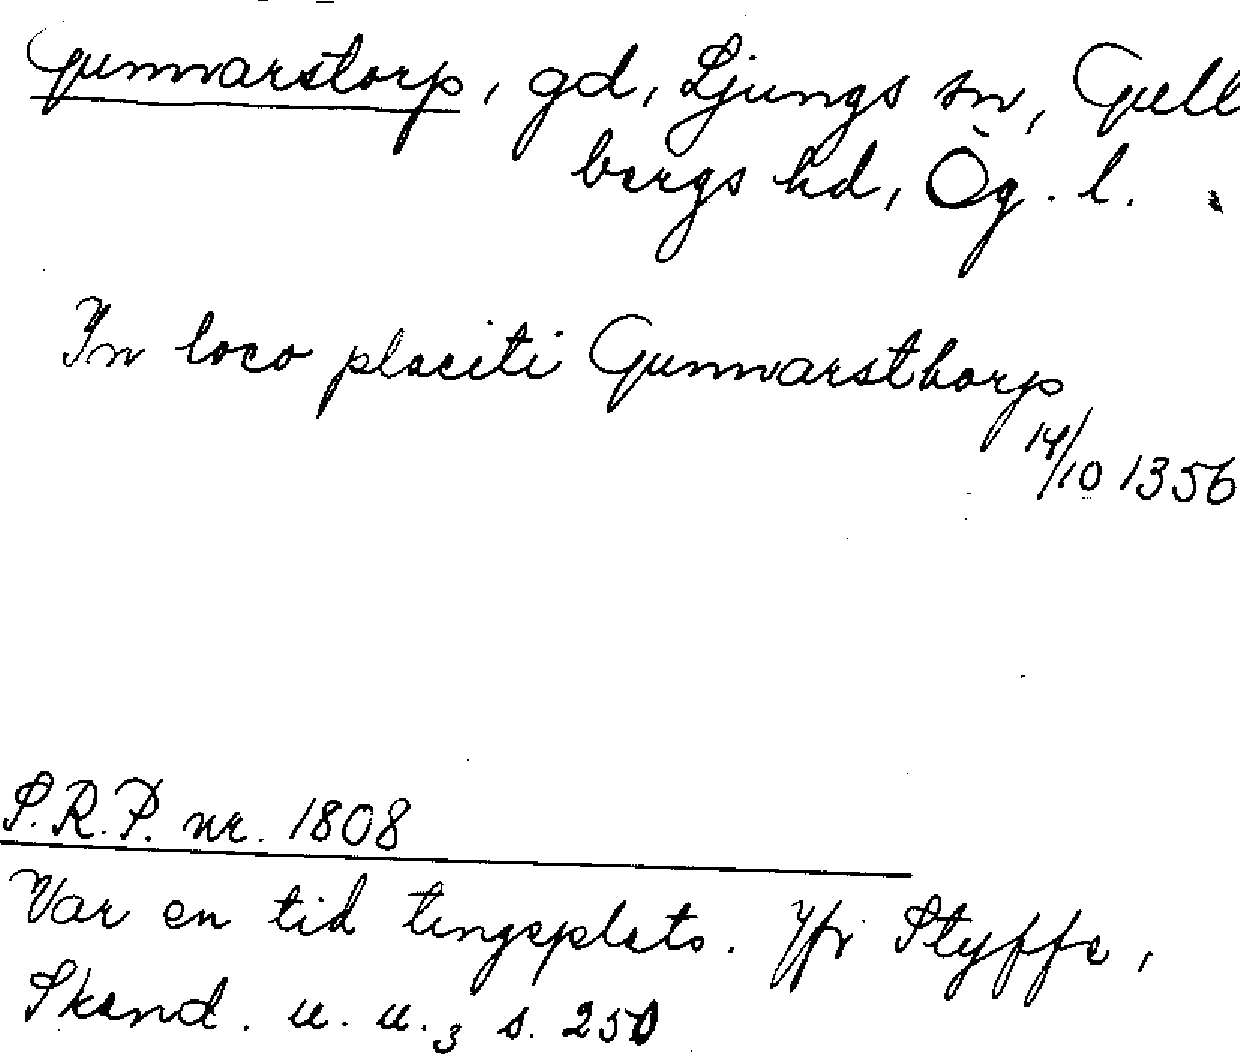 Gunnarstorp, gd, Ljungs sn, Gull
bergs hd, Ög. l.
In loco placiti Gunnarsthorp
14/10 1356
S.R.P. nr. 1808
Var en tid tingsplats. Jfr Styffe,
Skand. u. u.3 s. 250